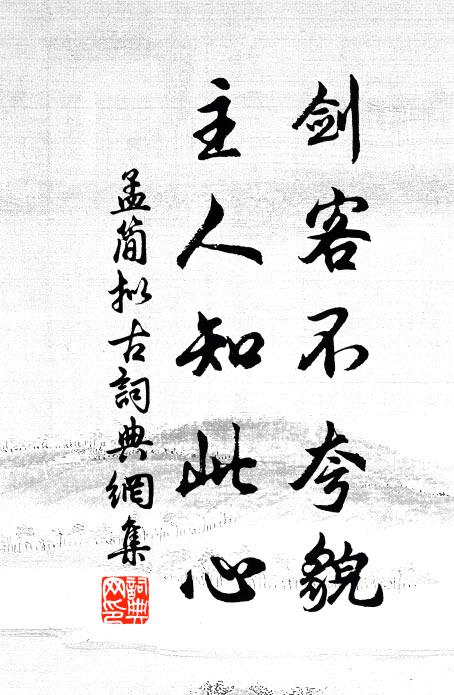 剑客不夸貌
主人知此心
孟简拟古詞典網集
詞典网印